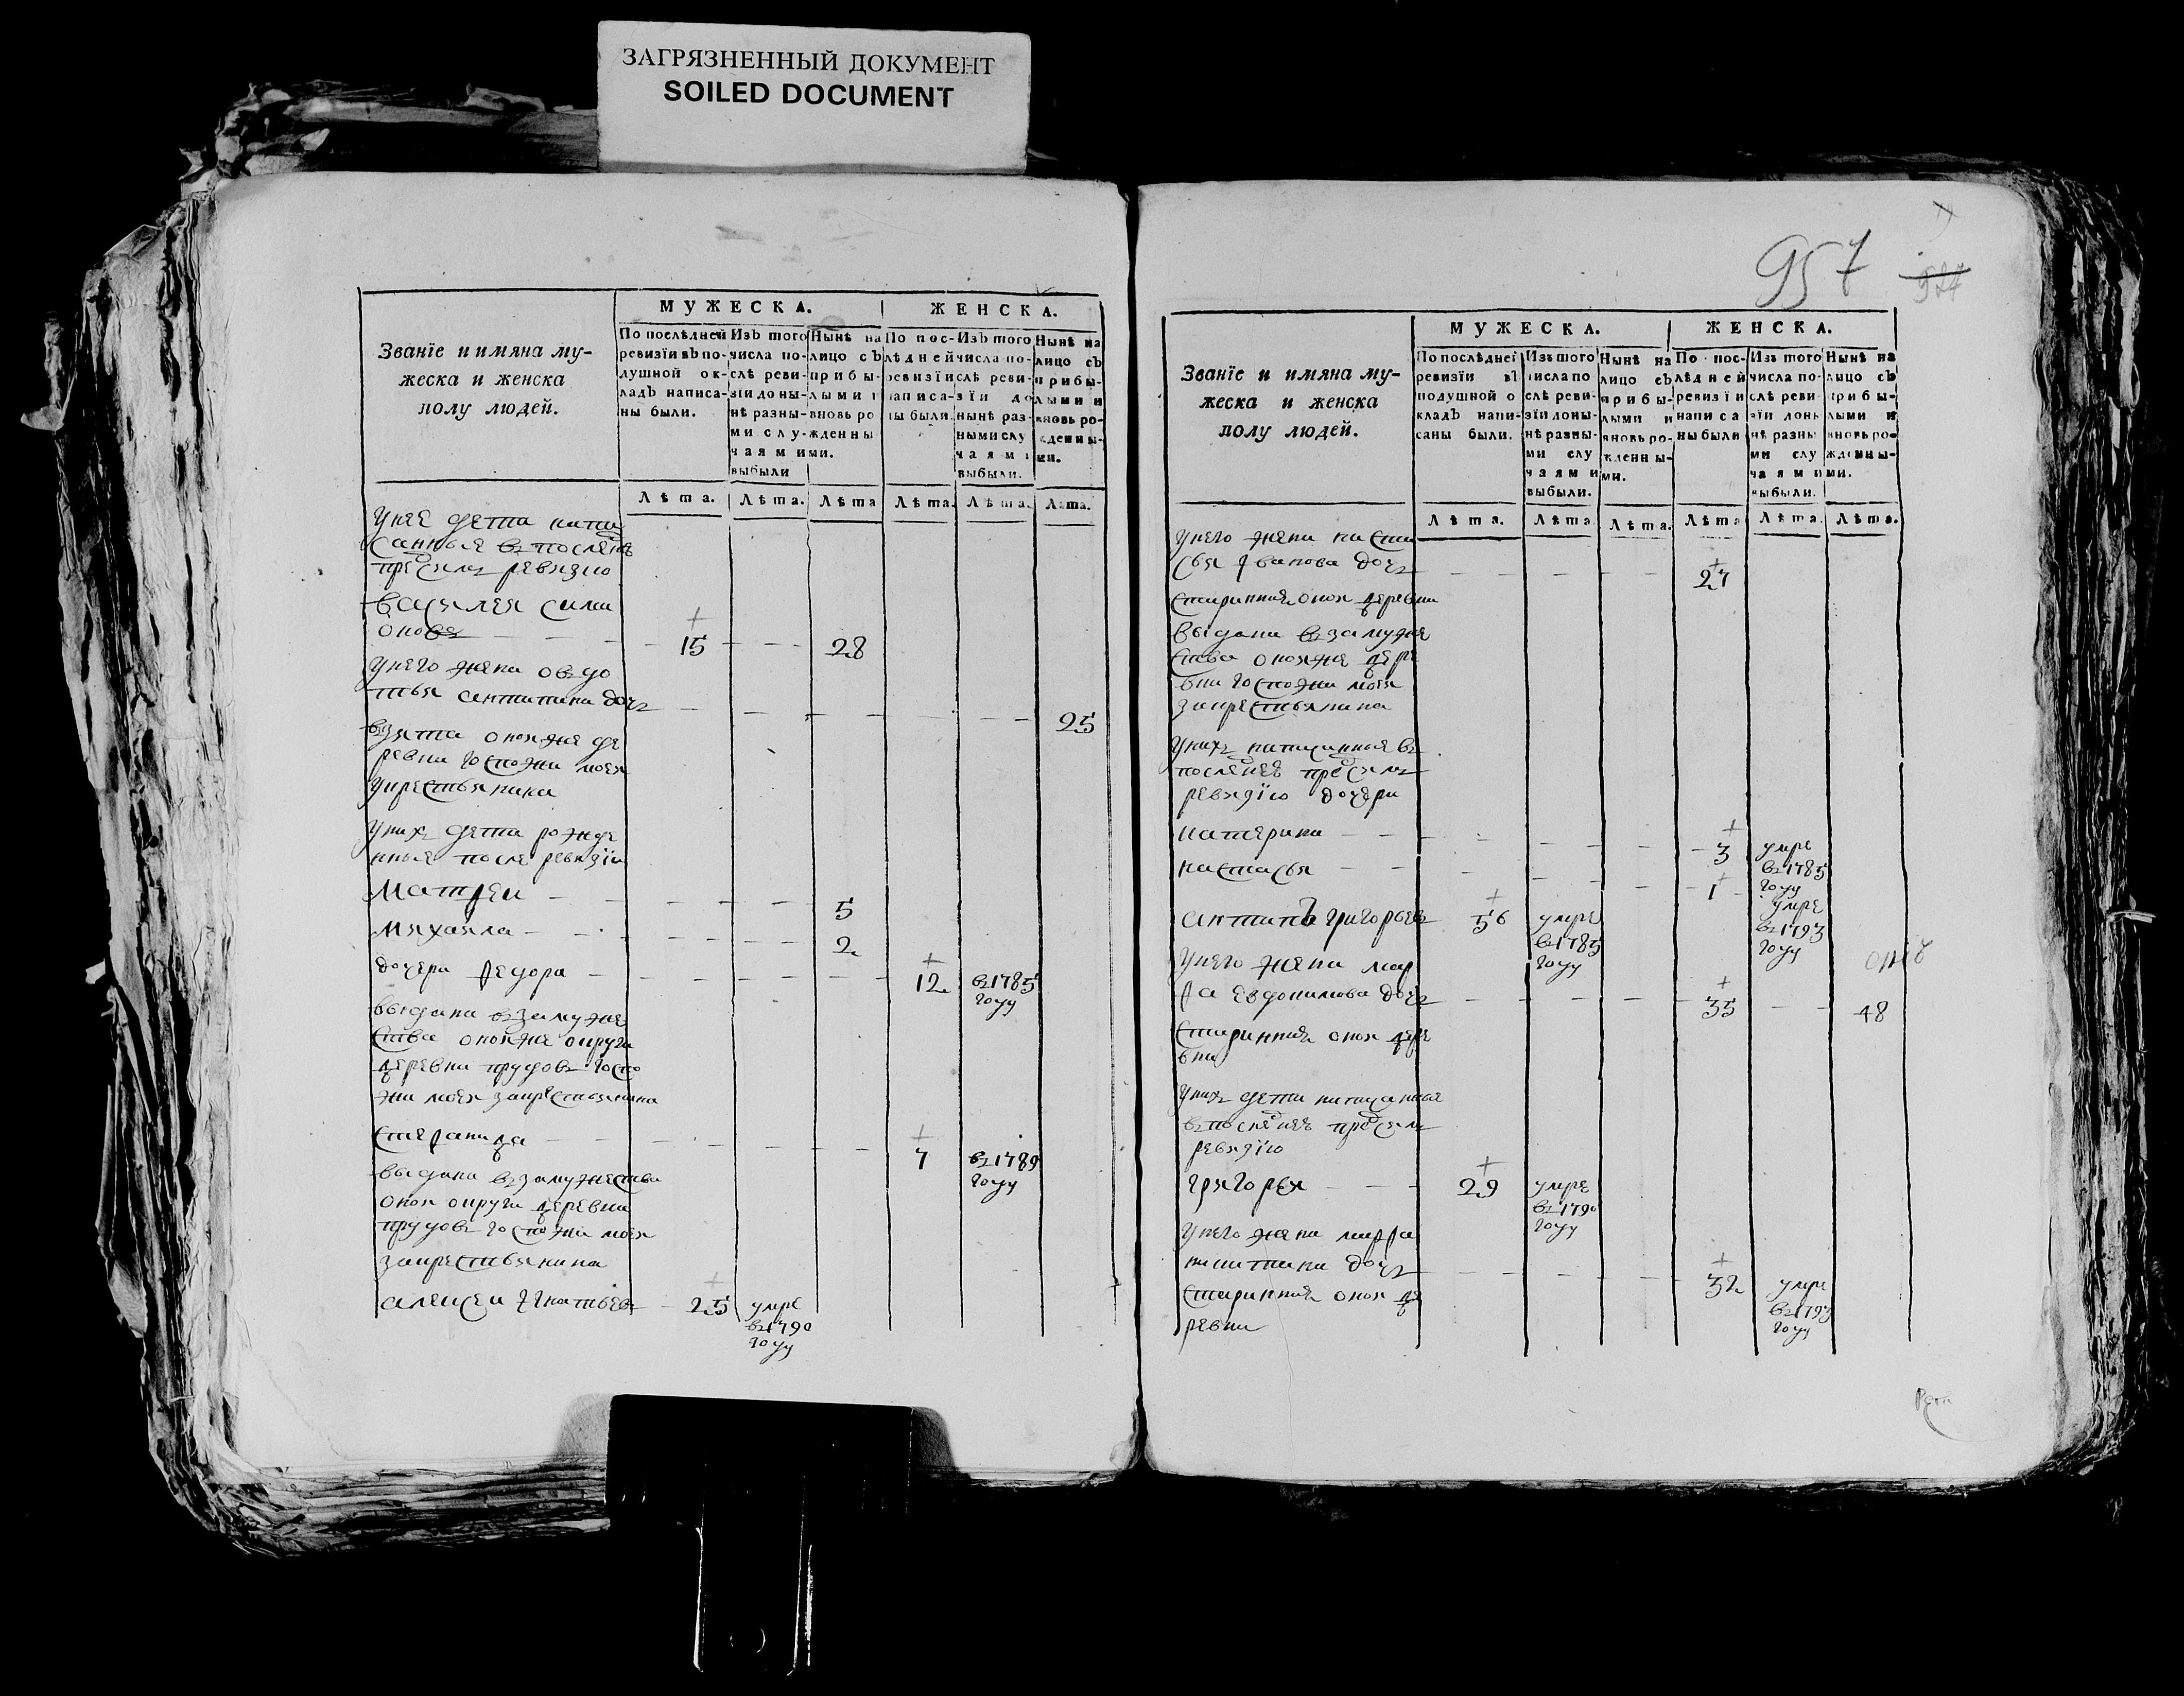 ЗАГРЯЗНЕННЫЙ ДОКУМЕНТ
SOILED DOCUMENT
Званїе и имяна му-
жеска и женска
полу людей.
МУЖЕСКА.
ЖЕНСКА.
По послѣдней
ревизїи въ по-
душной ок-
ладъ написа-
ны были.
Изъ того
числа по-
слѣ реви-
зїи до ны-
нѣ разны-
ми слу-
чаями
выбыли
Нынѣ на
лицо съ
прибы-
лыми и
вновь ро
жденны
ми.
По пос-
лѣдней
ревизїи
написа-
ны были.
Изъ того
числа по-
слѣ реви-
зїи до
нынѣ раз-
ными слу
чаями
выбыли.
Нынѣ на
лицо съ
прибы-
лыми и
вновь ро-
жденны-
ми.
Лѣта. Лѣта. Лѣта Лѣта. Лѣта. Лѣта.
унее дети напи
санные въ последнеѣ
пред симъ ревизию
василеи сими
оновъ 15 28
унего жена овдо
тья антипина дочь 25
взята оноиже де
ревни госпожи моеи
укрестьянина
унихъ дети рожде
нные после ревизїи
Матвеи 5
михаила 2
дочери федора 12 въ 1785
году
выдана взамуже
ства оноиже округи
деревни прудовъ госпо
жи моеи закрестьянина
степанида 7 въ 1789
году
выдана взамужества
онои округи деревни
прудовъ госпожи моеи
закрестьянина
алексеи игнатьевъ 25 умре
въ 1790
году
957
Званїе и имяна му-
жеска и женска
полу людей.
МУЖЕСКА.
ЖЕНСКА.
По послѣдней
ревизїи въ
подушной о
кладъ напи-
саны были.
Изъ того
числа по
слѣ реви-
зїи до ны-
нѣ разны-
ми слу
чаями
выбыли.
Нынѣ на
лицо съ
прибы-
лыми и
вновь ро-
жденны-
ми.
По пос-
лѣдней
ревизїи
написа
ны были
Изъ того
числа по-
слѣ реви
зїи до ны
нѣ разны
ми слу
чаями
выбыли.
Нынѣ на
лицо съ
прибы-
лыми и
вновь ро-
жденны-
ми.
Лѣта. Лѣта Лѣта. Лѣта Лѣта. Лѣта.
унего жена наста
сья иванова дочь 27
старинная онои деревни
выдана взамуже
ства оноиже дере
вни госпожи моеи
закрестьянина
унихъ написанные въ
последнеѣ пред симъ
ревизїю дочери
катерина 3 умре
въ 1785
году
настасья 1 умре
въ 1793
году
антипъ григорьевъ 56 умре
въ 1785
году
унего жена мар
фа евдокимова дочь 35 48
старинная онои дере
вни
унихъ дети написанные
въ последнеѣ пред симъ
ревизїю
григореи 29 умре
въ 1790
году
унего жена марфа
никитина дочь 32 умре
въ 1793
году
старинная онои де
ревни